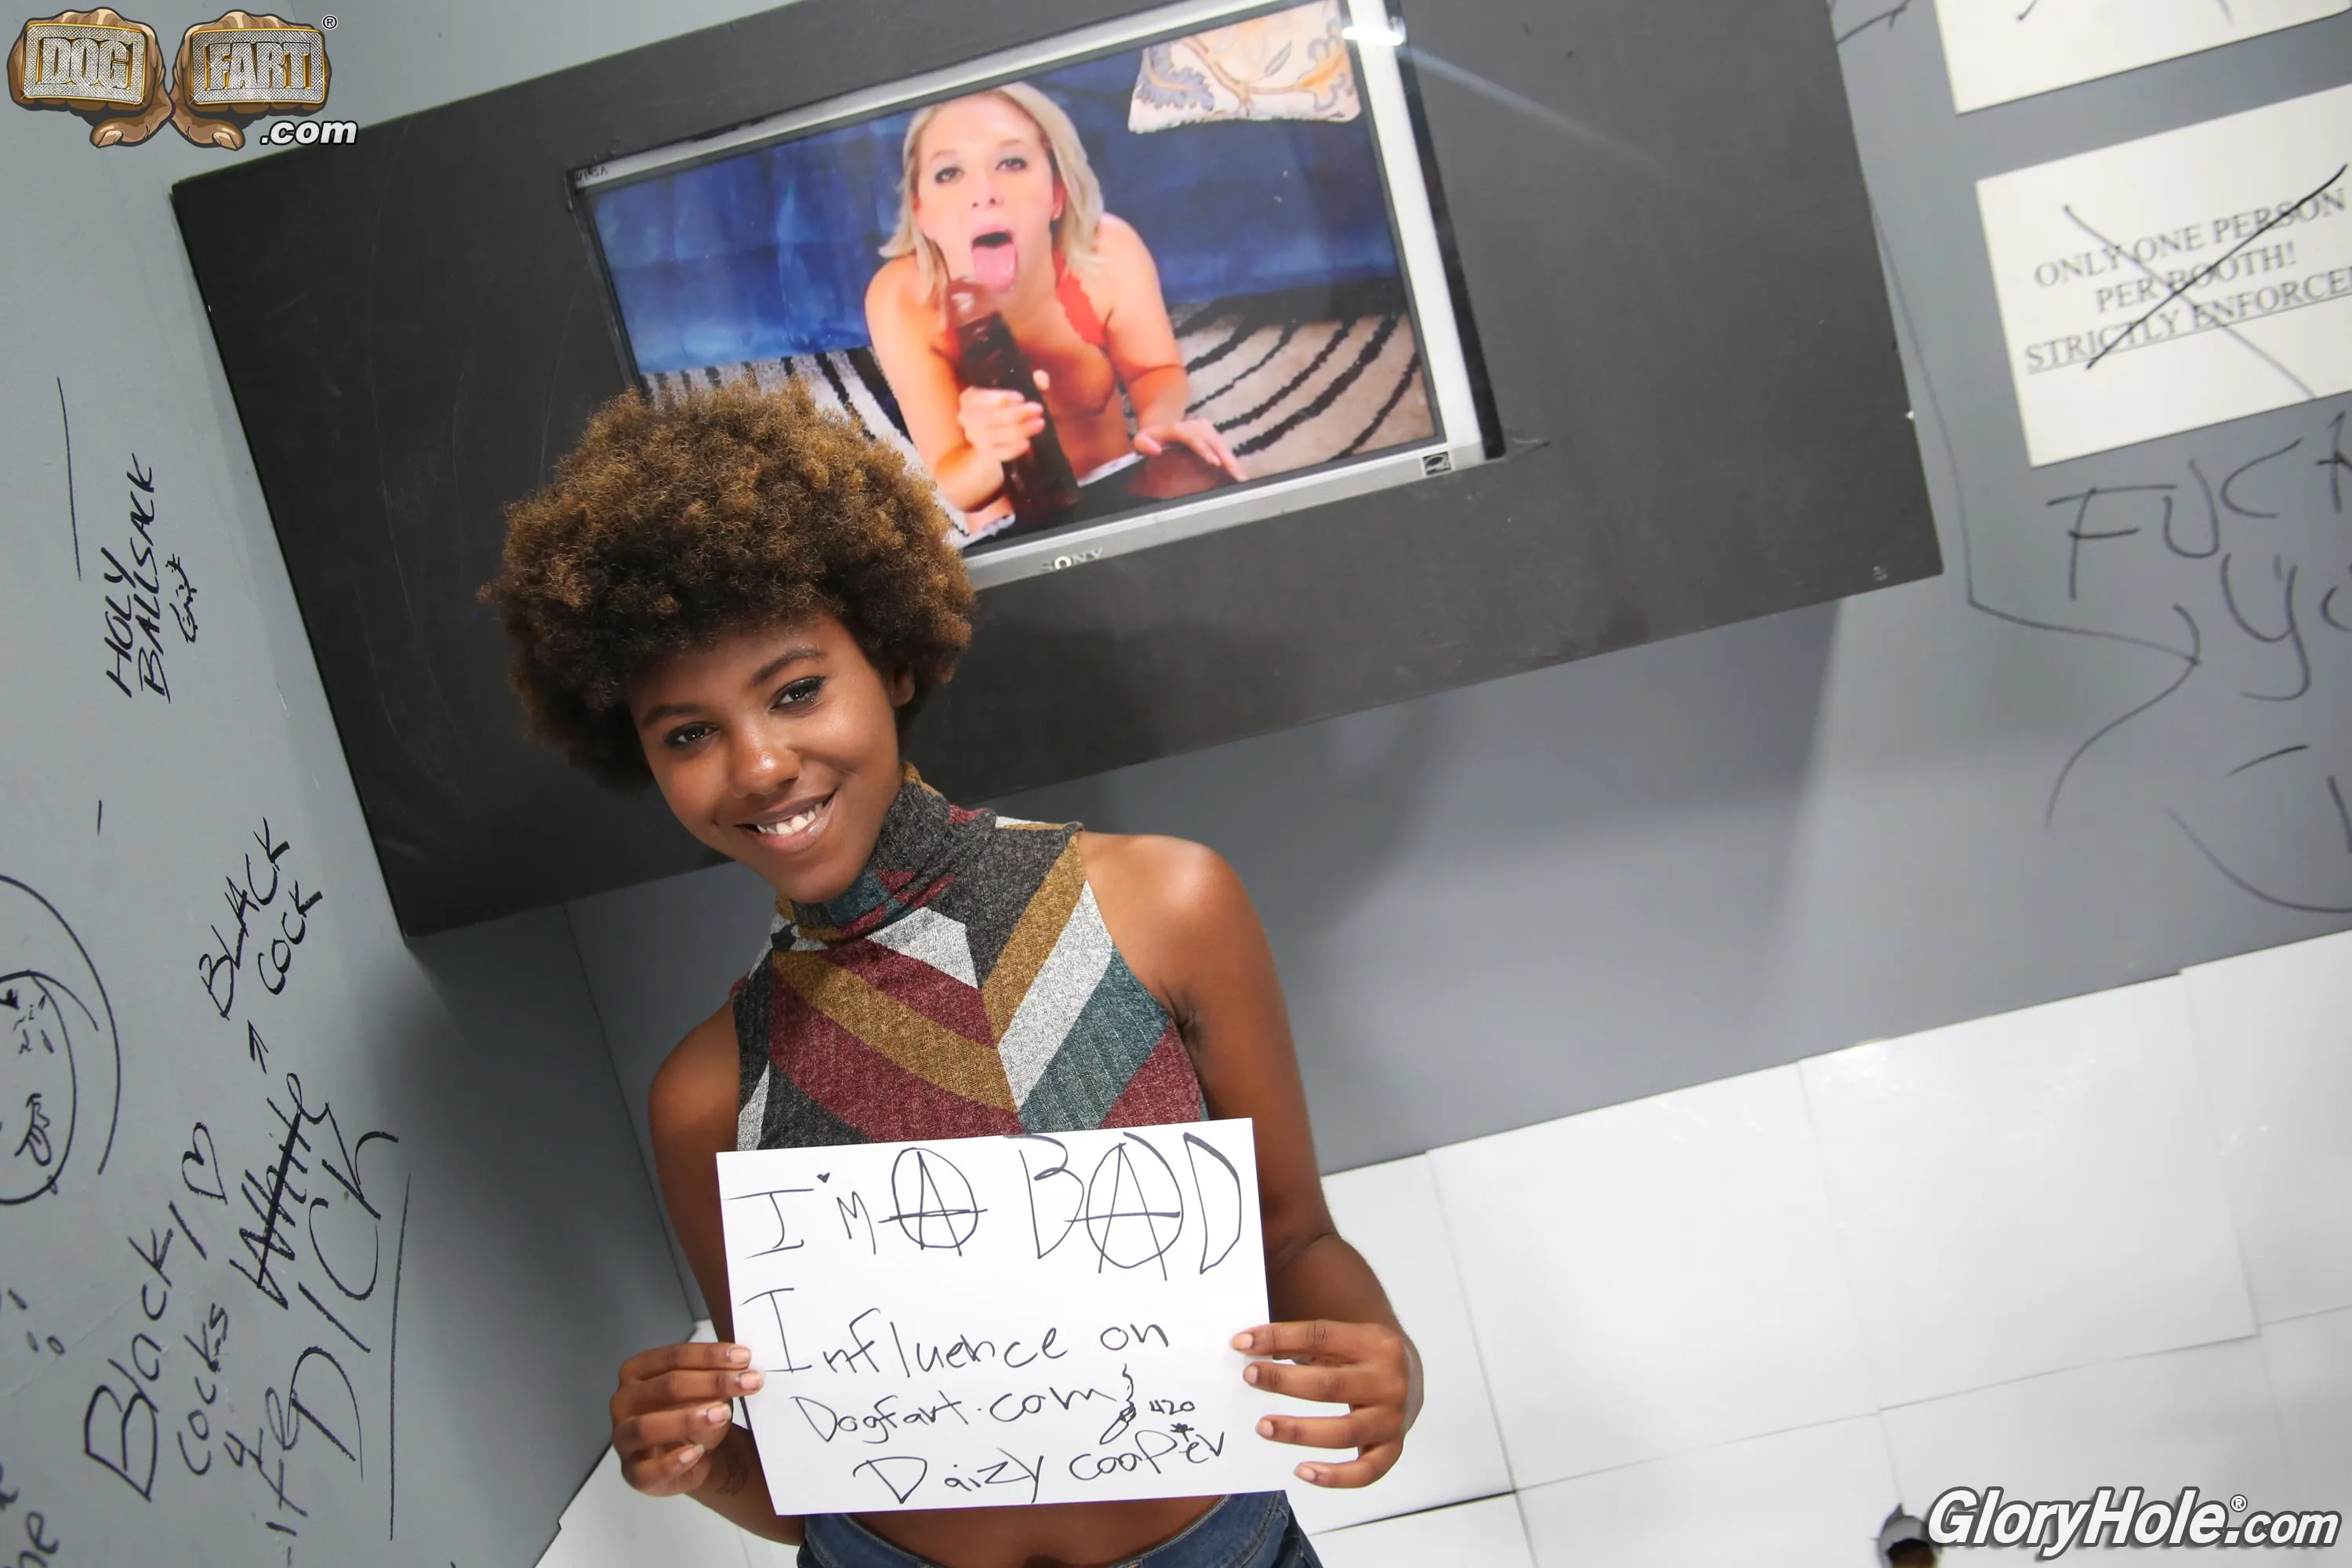 DOG FART®
.com
VEGA
SONY
ONLY ONE PERSON
PER BOOTH!
STRICTLY ENFORCE
FUCK
HOLY
BALLSACK
BLACK
COCK
Black
COCKS
4
life
White
DICK
I'M A BAD
Influence on
Dogfart.com
420
Daizy cooper
GloryHole®.com